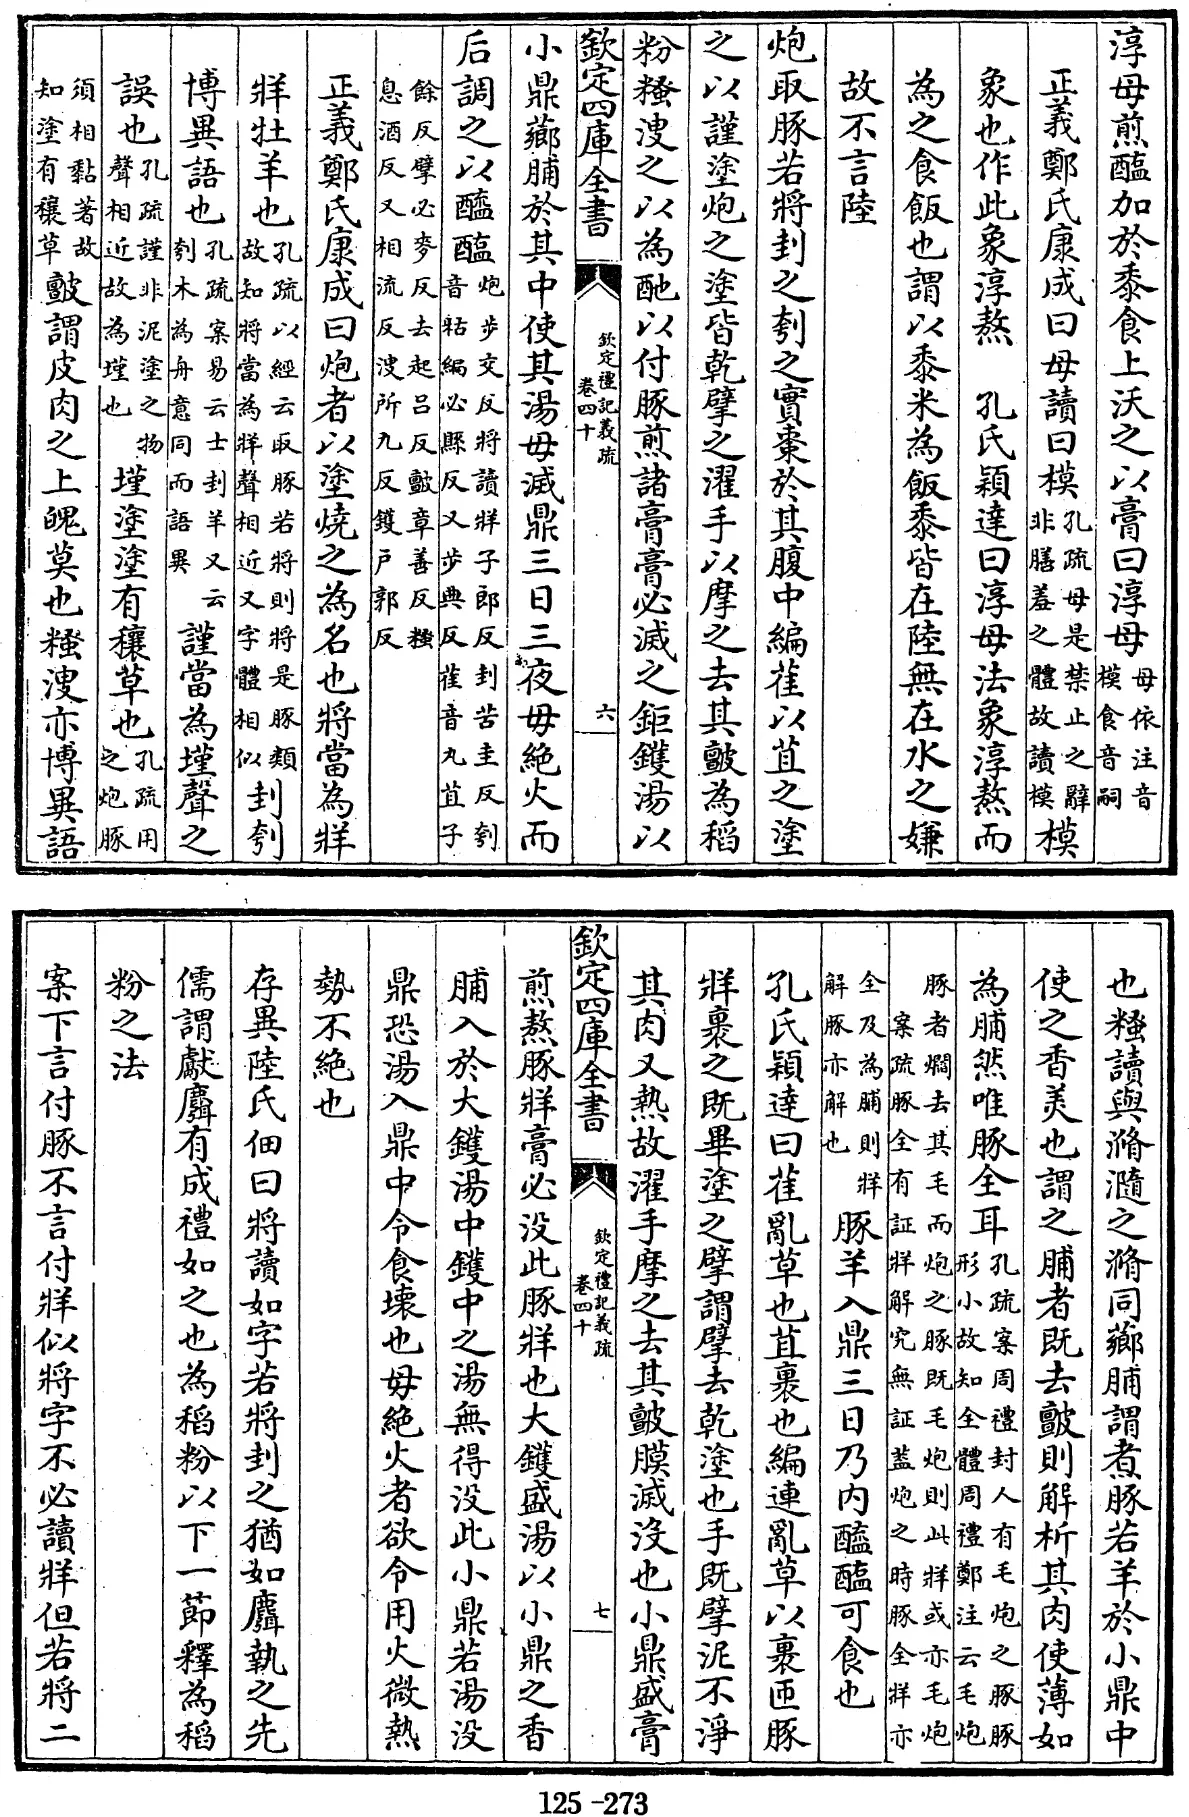 淳母煎醢加於黍食上沃之以膏曰淳母母依注音模食音嗣
正義鄭氏康成曰母讀曰模孔疏母是禁止之辭非膳羞之體故讀模模
象也作此象淳熬　孔氏穎達曰淳母法象淳熬而
為之食飯也謂以黍米為飯黍皆在陸無在水之嫌
故不言陸
炮取豚若將刲之刳之實棗於其腹中編萑以苴之塗
之以謹塗炮之塗皆乾擘之濯手以摩之去其皽為稻
粉糔溲之以為酏以付豚煎諸膏膏必滅之鉅鑊湯以
欽定四庫全書　欽定禮記義疏卷四十　六
小鼎薌脯於其中使其湯毋滅鼎三日三夜毋絶火而
后調之以醯醢炮步交反將讀牂子郎反刲苦圭反刳音枯編必縣反又步典反萑音丸苴子
餘反擘必麥反去起呂反皽章善反糔息酒反又相流反溲所九反鑊户郭反
正義鄭氏康成曰炮者以塗燒之為名也將當為牂
牂牡羊也孔疏以經云取豚若將則將是豚類故知將當為牂聲相近又字體相似刲刳
博異語也孔疏案易云士刲羊又云刳木為舟意同而語異　謹當為墐聲之
誤也孔疏謹非泥塗之物聲相近故為墐也　墐塗塗有穰草也孔疏用之炮豚
須相黏著故知塗有穰草皽謂皮肉之上魄莫也糔溲亦博異語
也糔讀與滫瀡之滫同薌脯謂煮豚若羊於小鼎中
使之香美也謂之脯者既去皽則解析其肉使薄如
為脯然唯豚全耳孔疏案周禮封人有毛炮之豚豚形小故知全體周禮鄭注云毛炮
豚者爓去其毛而炮之豚既毛炮則此牂或亦毛炮案疏豚全有証牂解究無証葢炮之時豚全牂亦
全及為脯則牂解豚亦解也　豚羊入鼎三日乃内醯醢可食也
孔氏穎達曰萑亂草也苴裹也編連亂草以裹匝豚
牂裹之既畢塗之擘謂擘去乾塗也手既擘泥不淨
其肉又熱故濯手摩之去其皽膜滅沒也小鼎盛膏
欽定四庫全書　欽定禮記義疏卷四十　七
煎熬豚牂膏必没此豚牂也大鑊盛湯以小鼎之香
脯入於大鑊湯中鑊中之湯無得没此小鼎若湯没
鼎恐湯入鼎中令食壞也毋絶火者欲令用火微熱
勢不絶也
存異陸氏佃曰將讀如字若將刲之猶如麛執之先
儒謂獻麛有成禮如之也為稻粉以下一節釋為稻
粉之法
案下言付豚不言付牂似將字不必讀牂但若將二
125-273